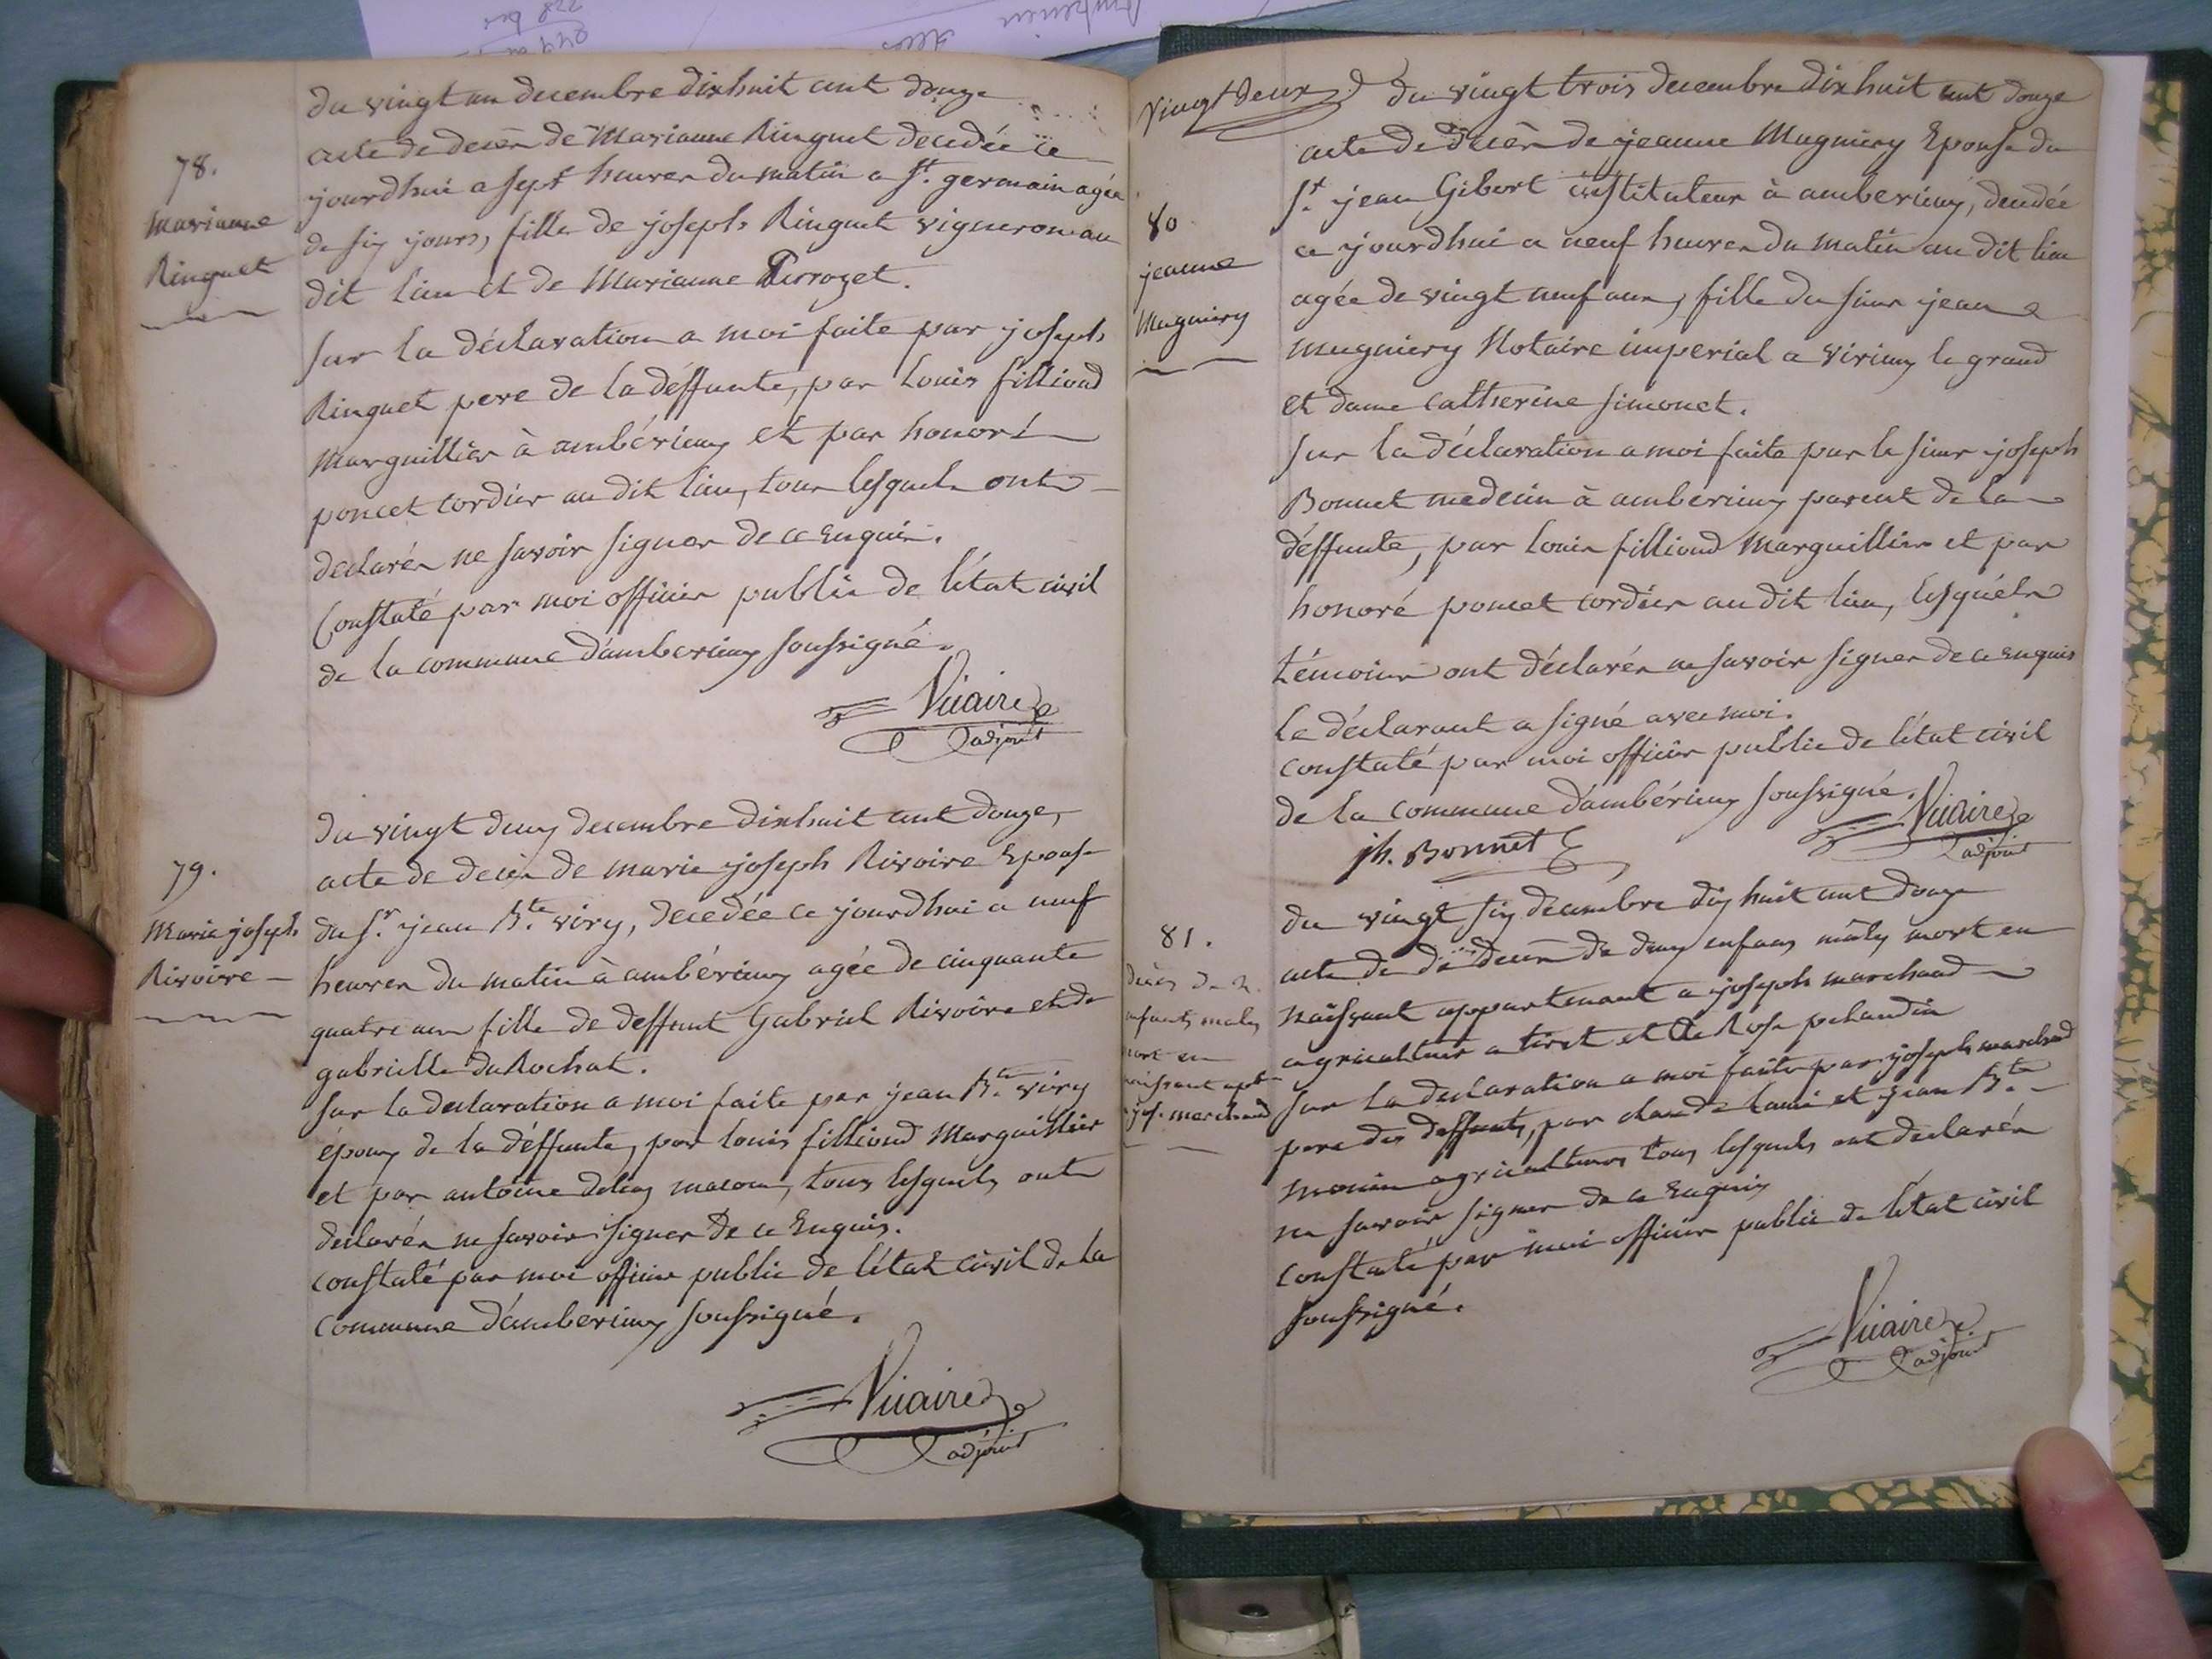 du vingt un decembre dixhuit cent douze
78.
Marianne
Ringuet
acte de decès de Marianne Ringuet decedée ce
jourdhui a sept heures du matin a St. germain agée
de six jours, fille de joseph Ringuet vigneron au
dit lieu et de Marianne Perrozet.
sur la déclaration a moi faite par joseph
Ringuet pere de la déffunte, par Louis filliond
Marguillier à ambérieux et par honoré
poncet cordier au dit lieu, tous lesquels ont
declarés ne savoir signer de ce Enquis.
Constaté par moi officier public de l'état civil
de la commune d'amberieux soussigné.
Vicaire
adjoint
79.
Marie joseph
Rivoire
du vingt deux decembre dixhuit cent douze,
acte de decès de marie joseph Rivoire Epouse
du Sr. jean Bte. viry, decedée ce jourdhui a neuf
heures du matin à ambérieux agée de cinquante
quatre ans fille de deffunt Gabriel Rivoire et de
gabrielle duRochat.
sur la declaration a moi faite par jean Bte. viry
époux de la déffunte, par louis filliond Marguillier
et par antoine macon, tous lesquels ont
declarés ne savoir signer de ce Enquis.
constaté par moi officier public de l'état civil de la
commune d'amberieux soussigné.
Vicaire
adjoint
vingt deux
du vingt trois decembre dixhuit cent douze
80
jeanne
Mugniery
acte de decès de jeanne Mugniery Epouse du
Sr. jean Gibert instituteur à amberieux, decedée
ce jourdhui a neuf heures du matin au dit lieu
agée de vingt neuf ans, fille du sieur jean
mugniery Notaire imperial a virieux le grand
et dame catherine simonet.
sur la déclaration a moi faite par le sieur joseph
Bonnet medecin à amberieux parent de la
déffunte, par louis filliond Marguillier et par
honoré poncet cordier au dit lieu, lesquéls
témoins ont déclarés ne savoir signer de ce enquis
le déclarant a signé avec moi.
constaté par moi officier public de l'état civil
de la commune d'ambérieux soussigné.
jh. Bonnet
Vicaire
adjoint
81.
décès de 2.
enfants males
mort en
naissant apt.
jos. marchand
du vingt six décembre dix huit cent douze
acte de dé decès de deux enfans mâles mort en
naissant appartenant a joseph marchand
agriculteur a tiret et de Rose pelaudin
sur la declaration a moi faite par joseph marchand
pere des deffunts, par claude lami et jean Bte.
monin agriculteurs tous lesquels ont declarés
ne savoir signer de ce Enquis
constaté par moi officier public de l'état civil
soussigné.
Vicaire
adjoint